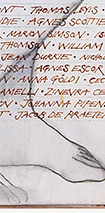 ONT · THOMAS
DIE · AGNES SCOTTIE
· MARION SIMSON · ISS
THOMSON · WILLIAM
· JEAN DURKIE ·
LISSA · AGNES ESCOR
· ANNA GÖLDI · CEC
ANIELL · ZINEVRA CE
ON · JOHANNA PIPENE
T · JACOB DE PRAETE